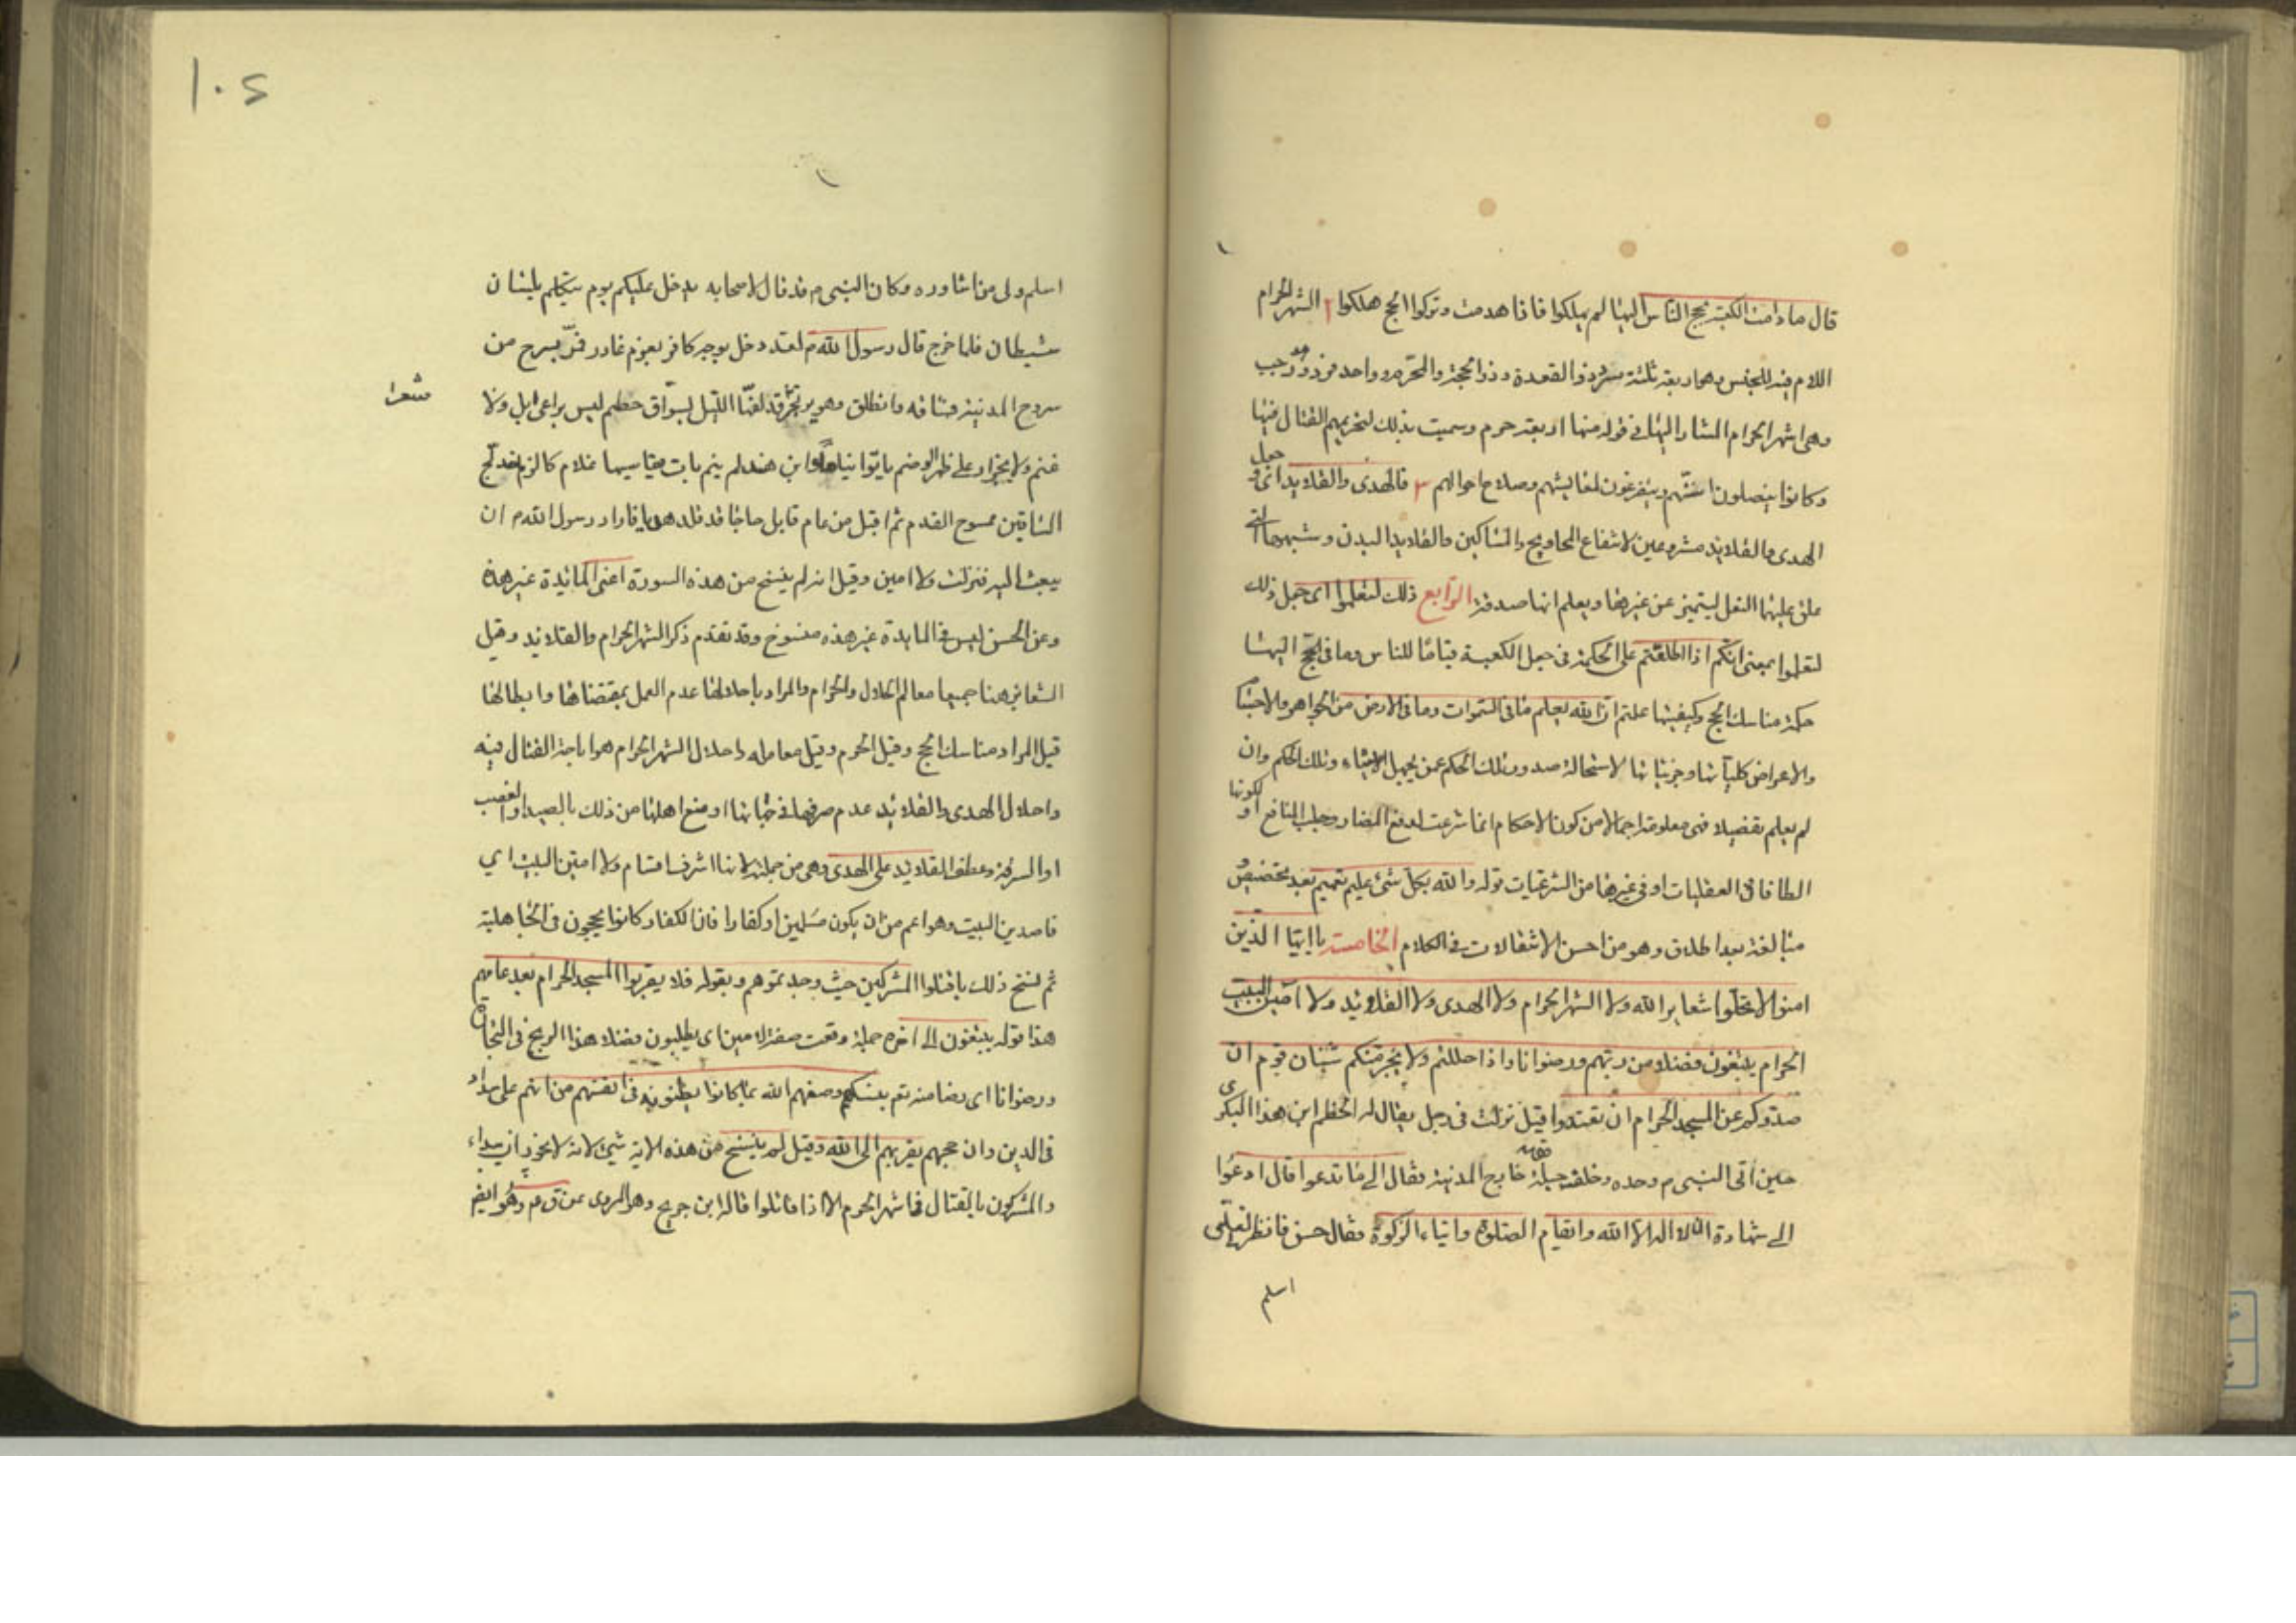 قال ما دامت الكعبة يحج الناس اليها لم يهلكوا فاذا هدمت وتركوا الحج هلكوا ٢ الشهر الحرام
اللام فيه للجنس وهو اربعة ثلثة سرد ذو القعدة وذو الحجة والمحرم وواحد فرد وهو رجب
وهى اشهر الحرام المشار اليها فى قوله منها اربعة حرم وسميت بذلك لتحريمهم القتال فيها
وكانوا ينصلون اسنتهم ويتفرغون لمعايشهم وصلاح احوالهم ٣ والهدى والقلائد اى وجعل
الهدى والقلائد مشروعين لانتفاع المحاويج والمساكين والقلايد البدن وشبهها التى
علق عليها النعل ليتميز عن غيرها ويعلم انها صدقة الرابع ذلك لتعلموا اى جعل ذلك
لتعلموا بمعنى انكم اذا اطلعتم على الحكمة فى جعل الكعبة قياما للناس وما فى الحج اليها
حكمة مناسك الحج وكيفيتها علمتم ان الله يعلم ما فى السموات وما فى الارض من الجواهر والاجسام
والاعراض كلياتها وجزئياتها لاستحالة صدور تلك الحكم عمن يجهل الاشياء وتلك الحكم وان
لم يعلم تفصيلا فهى معلومة اجمالا من كون الاحكام انما شرعت لدفع المضار وجلب المنافع او لكونها
الطافا فى العقليات او فى غيرها من الشرعيات قوله والله بكل شئ عليم تعميم بعد تخصيص و
مبالغة بعد اطلاق وهو من احسن الانتقالات فى الكلام الخامسة يا ايها الذين
امنوا لا تحلوا شعاير الله ولا الشهر الحرام ولا الهدى ولا القلائد ولا آمين البيت
الحرام يبتغون فضلا من ربهم ورضوانا واذا حللتم ولا يجرمنكم شنئان قوم ان
صدوكم عن المسجد الحرام ان تعتدوا قيل نزلت فى رجل يقال له الحطم ابن هذا البكرى
حين اتى النبى م وحده وخلف جيله خارج المدينة فقال الى ما تدعوا قال ادعوا
الى شهادة ان لا اله الا الله واتقام الصلوة وايتاء الزكوة فقال حسن فانظر لى لعلى
اسلم
١٠٤
اسلم ولى من اشاوره وكان النبى م قد قال لاصحابه يدخل عليكم يوم يتكلم بلسان
شيطان فلما خرج قال رسول الله م لقد دخل بوجه كافر بعزم غادر فمر بسرح من
سروح المدينة فساقه وانطلق وهو يرتجز قد لفها الليل بسواق حطم ليس براعى ابل ولا
غنم ولا بجزار على ظهر الوضم باتوا نياما وابن هند لم ينم بات يقاسيها غلام كالزلم خدلج
الساقين ممسوح القدم ثم اقبل من عام قابل حاجا قد قلد هديا فاراد رسول الله م ان
يبعث اليه فنزلت ولا امين وقيل انه لم ينسخ من هذه السورة اعنى المائدة غير هذه
وعن الحسن ليس فى المايدة غير هذه منسوخ وقد تقدم ذكر الشهر الحرام والقلائد وقيل
الشعاير هنا جميعا معالم الحلال والحرام والمراد باحلالها عدم العمل بمقتضاها وابطالها
قيل المراد مناسك الحج وقيل الحرم وقيل معامله واحلال الشهر الحرام هو اباحة القتال فيه
واحلال الهدى والقلائد عدم صرفها فى جهاتها او منع اهلها من ذلك بالصيد او الغصب
او السرقة وعطف القلايد على الهدى وهى من جملته لانها اشرف اقسام ولا امين البيت اى
قاصدين البيت وهو اعم من ان يكون مسلمين او كفارا فان الكفار كانوا يحجون فى الجاهلية
ثم نسخ ذلك باقتلوا المشركين حيث وجدتموهم وبقوله فلا يقربوا المسجد الحرام بعد عامهم
هذا قوله يبتغون الى اخره جملة وقعت صفة لامين اى يطلبون فضلا هذا الربح فى التجارة
ورضوانا اى رضا منه تع بنسكهم وصفهم الله بما كانوا يظنونه فى انفسهم من انهم على سداد
فى الدين وان حجهم يقربهم الى الله وقيل لم ينسخ من هذه الاية شئ لانه لا يجوز ان يبداء
والمشركون بالقتال فى اشهر الحرم الا اذا قاتلوا قاله ابن جريح وهو المروى عن ق ع وهو ايض